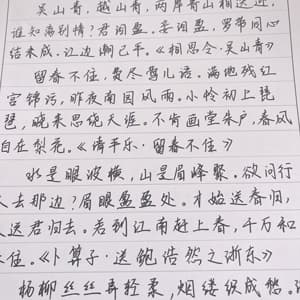 吴山青,越山青,两岸青山相送迎,
谁知离别情?君泪盈,妾泪盈,罗带同心
结未成,江边潮已平。《相思令·吴山青》
留春不住,费尽莺儿语。满地残红
宫锦污,昨夜南园风雨。小怜初上琵
琶,晓来思绕天涯。不肯画堂朱户,春风
自在梨花。《清平乐·留春不住》
水是眼波横,山是眉峰聚。欲问行
人去那边?眉眼盈盈处。才始送春归,
又送君归去。若到江南赶上春,千万和
春住。《卜算子·送鲍浩然之浙东》
杨柳丝丝弄轻柔,烟缕织成愁。